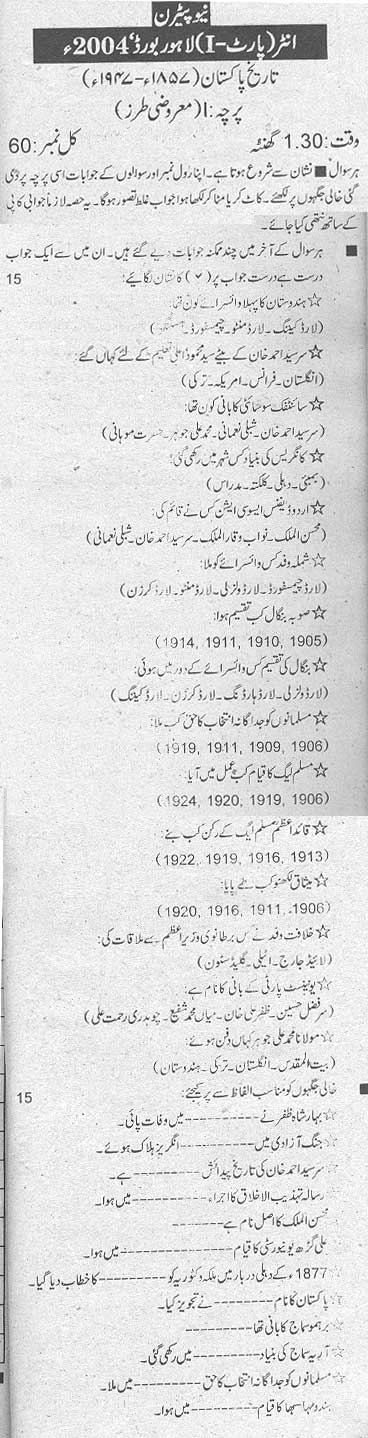 نیو پیٹرن
انٹر (پارٹ-I) لاہور بورڈ، 2004ء
تاریخ پاکستان (۱۸۵۷ء-۱۹۴۷ء)
پرچہ: I (معروضی طرز)
وقت: 1.30 گھنٹہ کل نمبر: 60
ہر سوال ■ نشان سے شروع ہوتا ہے۔ اپنا رول نمبر اور سوالوں کے جوابات اسی پرچہ پر دی
گئی خالی جگہوں پر لکھئے۔ کاٹ کر یا مٹا کر لکھا ہوا جواب غلط تصور ہوگا۔ یہ حصہ لازماً جوابی کاپی
کے ساتھ نتھی کیا جائے۔
■ ہر سوال کے آخر میں چند ممکنہ جوابات دیے گئے ہیں۔ ان میں سے ایک جواب
درست ہے درست جواب پر (✓) کا نشان لگائیے: 15
☆ ہندوستان کا پہلا وائسرائے کون تھا:
(لارڈ کیننگ۔ لارڈ منٹو۔ چیمسفورڈ۔
☆ سرسید احمد خان کے بیٹے سید محمود اعلیٰ تعلیم کے لئے کہاں گئے:
(انگلستان۔ فرانس۔ امریکہ۔ ترکی)
☆ سائنٹفک سوسائٹی کا بانی کون تھا:
(سرسید احمد خان۔ شبلی نعمانی۔ محمد علی جوہر۔ حسرت موہانی)
☆ کانگریس کی بنیاد کس شہر میں رکھی گئی:
(بمبئی۔ دہلی۔ کلکتہ۔ مدراس)
☆ اردو ڈیفنس ایسوسی ایشن کس نے قائم کی:
(محسن الملک۔ نواب وقار الملک۔ سرسید احمد خان۔ شبلی نعمانی)
☆ شملہ وفد کس وائسرائے کو ملا:
(لارڈ چیمسفورڈ۔ لارڈ ولزلی۔ لارڈ منٹو۔ لارڈ کرزن)
☆ صوبہ بنگال کب تقسیم ہوا:
(1905 ,1910 ,1911 ,1914)
☆ بنگال کی تقسیم کس وائسرائے کے دور میں ہوئی:
(لارڈ ولزلی۔ لارڈ ہارڈنگ۔ لارڈ کرزن۔ لارڈ کیننگ)
☆ مسلمانوں کو جداگانہ انتخاب کا حق کب ملا:
(1906 ,1909 ,1911 ,1919)
☆ مسلم لیگ کا قیام کب عمل میں آیا:
(1906 ,1919 ,1920 ,1924)
☆ قائداعظم مسلم لیگ کے رکن کب بنے:
(1913 ,1916 ,1919 ,1922)
☆ میثاق لکھنؤ کب طے پایا:
(1906، 1911 ,1916 ,1920)
☆ خلافت وفد نے کس برطانوی وزیراعظم سے ملاقات کی:
(لائیڈ جارج۔ اٹیلی۔ گلیڈسٹون)
☆ یونینسٹ پارٹی کے بانی کا نام ہے:
(سر فضل حسین۔ ظفر علی خان۔ میاں محمد شفیع۔ چوہدری رحمت علی)
☆ مولانا محمد علی جوہر کہاں دفن ہوئے:
(بیت المقدس۔ انگلستان۔ ترکی۔ ہندوستان)
■ خالی جگہوں کو مناسب الفاظ سے پر کیجئے: 15
☆ بہادر شاہ ظفر نے ---------- میں وفات پائی۔
☆ جنگ آزادی میں ---------- انگریز ہلاک ہوئے۔
☆ سرسید احمد خان کی تاریخ پیدائش ---------- ہے۔
رسالہ تہذیب الاخلاق کا اجراء ---------- میں ہوا۔
محسن الملک کا اصل نام ہے ----------
☆ علی گڑھ یونیورسٹی کا قیام ---------- میں ہوا۔
☆ 1877ء کے دہلی دربار میں ملکہ وکٹوریہ کو ---------- کا خطاب دیا گیا۔
☆ پاکستان کا نام ---------- نے تجویز کیا۔
☆ برہمو سماج کا بانی تھا ----------
☆ آریہ سماج کی بنیاد ---------- میں رکھی گئی۔
☆ مسلمانوں کو جداگانہ انتخاب کا حق ---------- میں ملا۔
ہندو مہاسبھا کا قیام ---------- میں ہوا۔